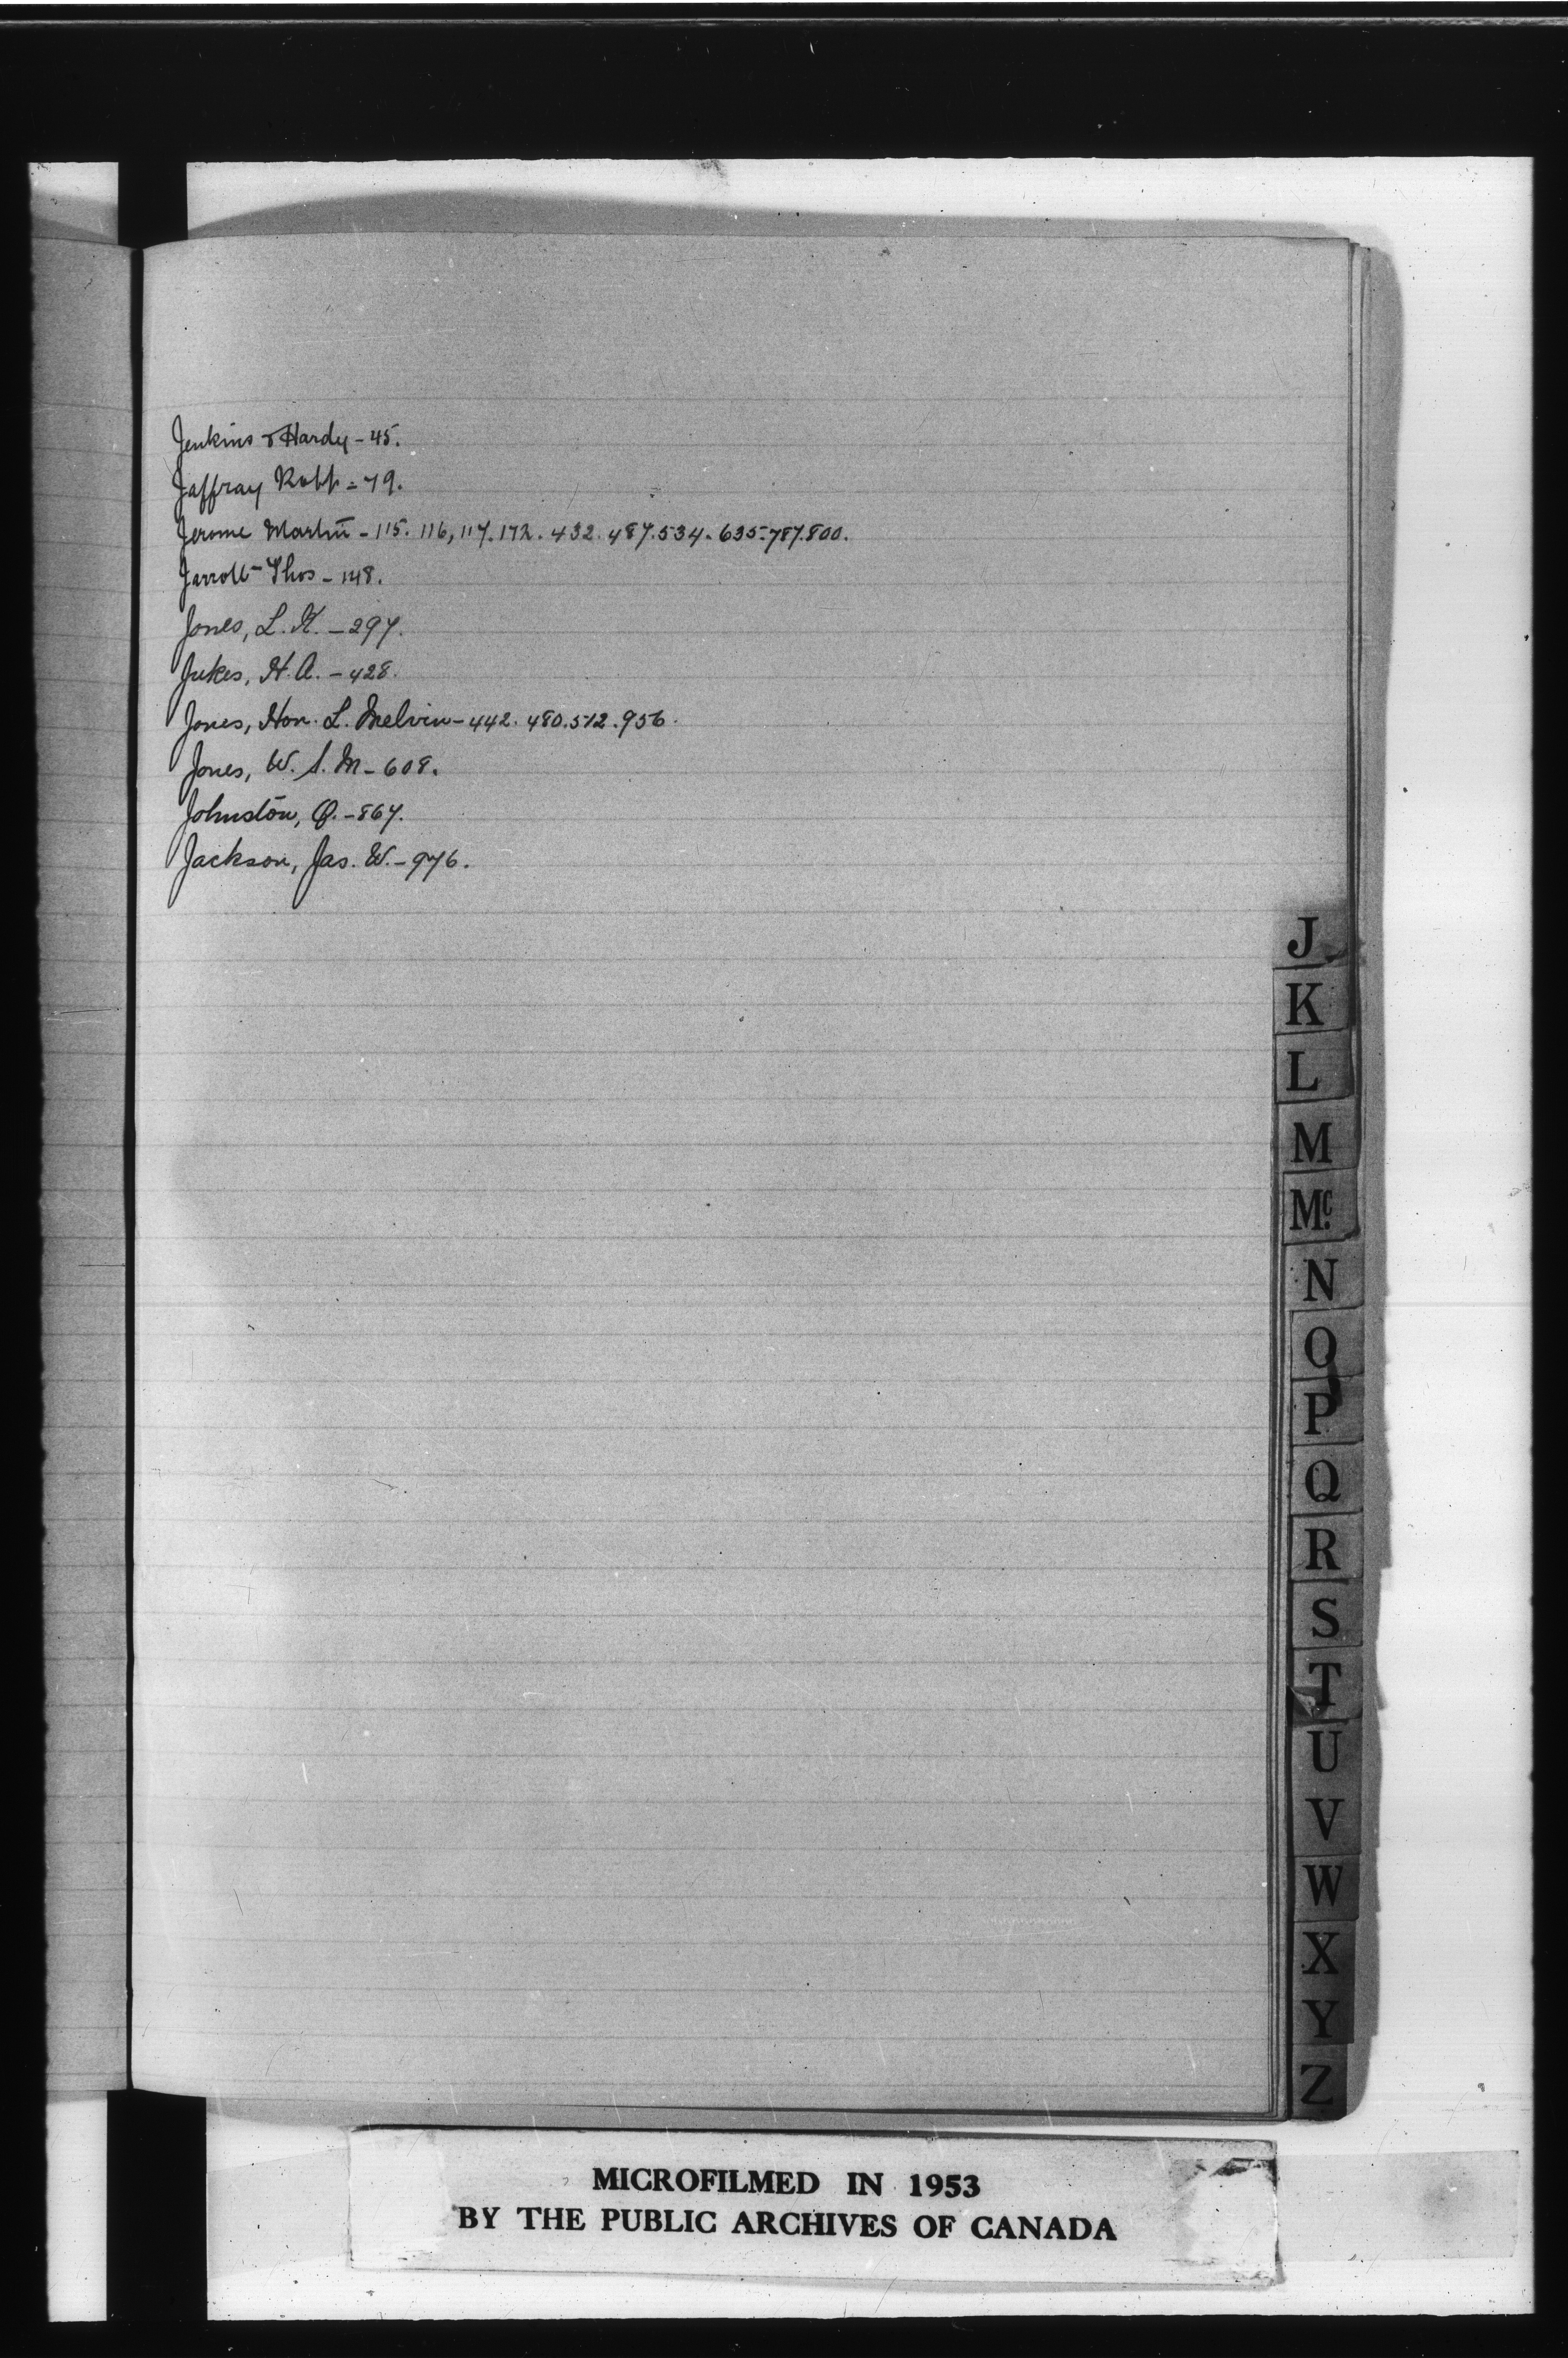 Jenkins & Hardy - 45.
Jaffray Robt = 79.
Jerome Martin - 115. 116, 117. 172. 432. 487. 534. 635. 787. 800.
Jarrott Thos - 148.
Jones, L. H. - 297.
Jukes, H. A. - 428.
Jones, Hon. L. Melvin - 442. 480. 512. 956.
Jones, W. S. M - 608.
Johnston, Q. - 867.
Jackson, Jas. W. - 976.
J
K
L
M
Mc.
N
O
P
Q
R
S
T
U
V
W
X
Y
Z
MICROFILMED IN 1953
BY THE PUBLIC ARCHIVES OF CANADA